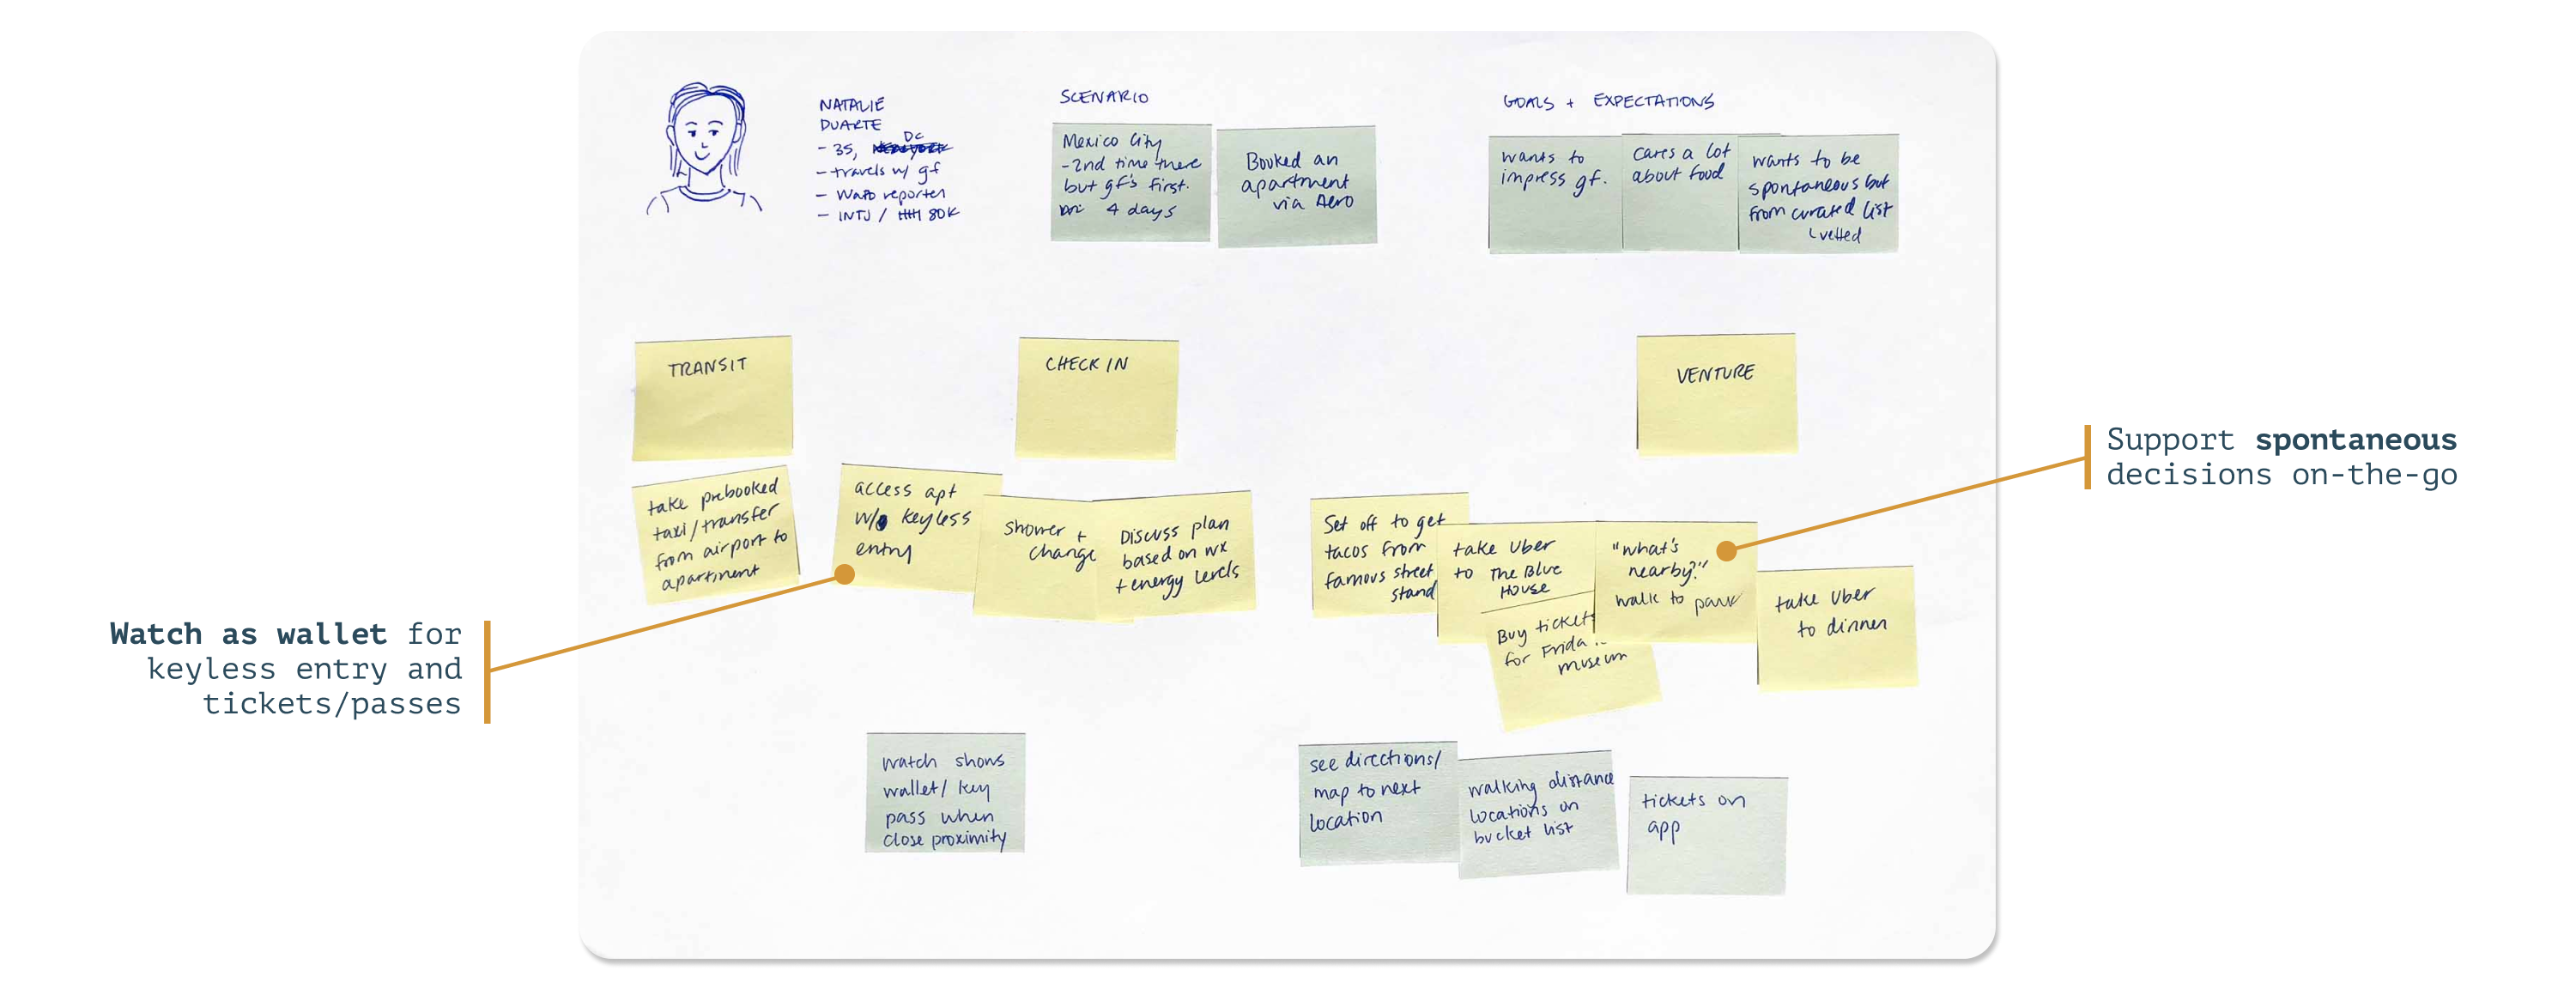 NATALIE
DUARTE
DC
- 35,
- travels w/ gf
- WaPo reporter
- INTJ / 80K
SCENARIO
Mexico City
- 2nd time there
but gf's first.
4 days
Booked an
apartment
via Aero
GOALS + EXPECTATIONS
wants to
impress gf.
cares a lot
about food
wants to be
spontaneous but
from curated list
vetted
TRANSIT
CHECK IN
VENTURE
take prebooked
taxi/transfer
from airport to
apartment
access apt
w/ keyless
entry
shower +
change
Discuss plan
based on wx
+ energy levels
Set off to get
tacos from
famous street
stand
take Uber
to The Blue
House
Buy tickets
for Frida
museum
"what's
nearby?"
walk to park
take Uber
to dinner
watch shows
wallet/ key
pass when
close proximity
see directions/
map to next
location
walking distance
locations on
bucket list
tickets on
app
Watch as wallet for
keyless entry and
tickets/passes
Support spontaneous
decisions on-the-go